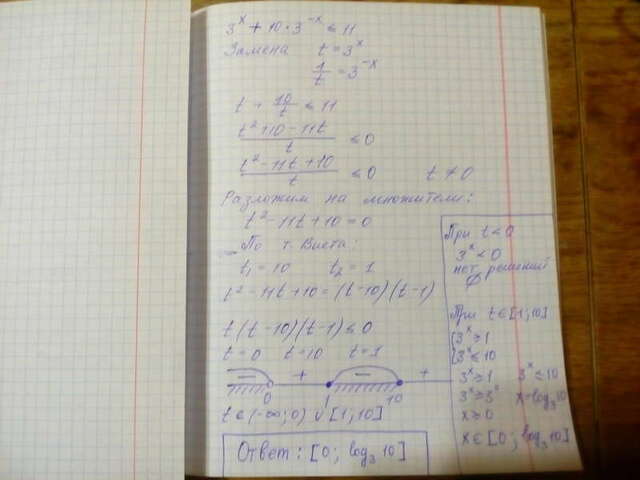 3^x + 10·3^-x ≤ 11
Замена t = 3^x
1/t = 3^-x
t + 10/t ≤ 11
(t² + 10 - 11t)/t ≤ 0
(t² - 11t + 10)/t ≤ 0 t ≠ 0
Разложим на множители:
t² - 11t + 10 = 0
По т. Виета:
t₁ = 10 t₂ = 1
t² - 11t + 10 = (t-10)(t-1)
t(t-10)(t-1) ≤ 0
t = 0 t = 10 t = 1
− + − +
0 1 10
t ∈ (-∞; 0) ∪ [1; 10]
Ответ: [0; log₃ 10]
При t < 0
3^x < 0
нет решений
∅
При t ∈ [1; 10]
{3^x ≥ 1
{3^x ≤ 10
3^x ≥ 1 3^x ≤ 10
3^x ≥ 3° x ≤ log₃ 10
x ≥ 0
x ∈ [0; log₃ 10]